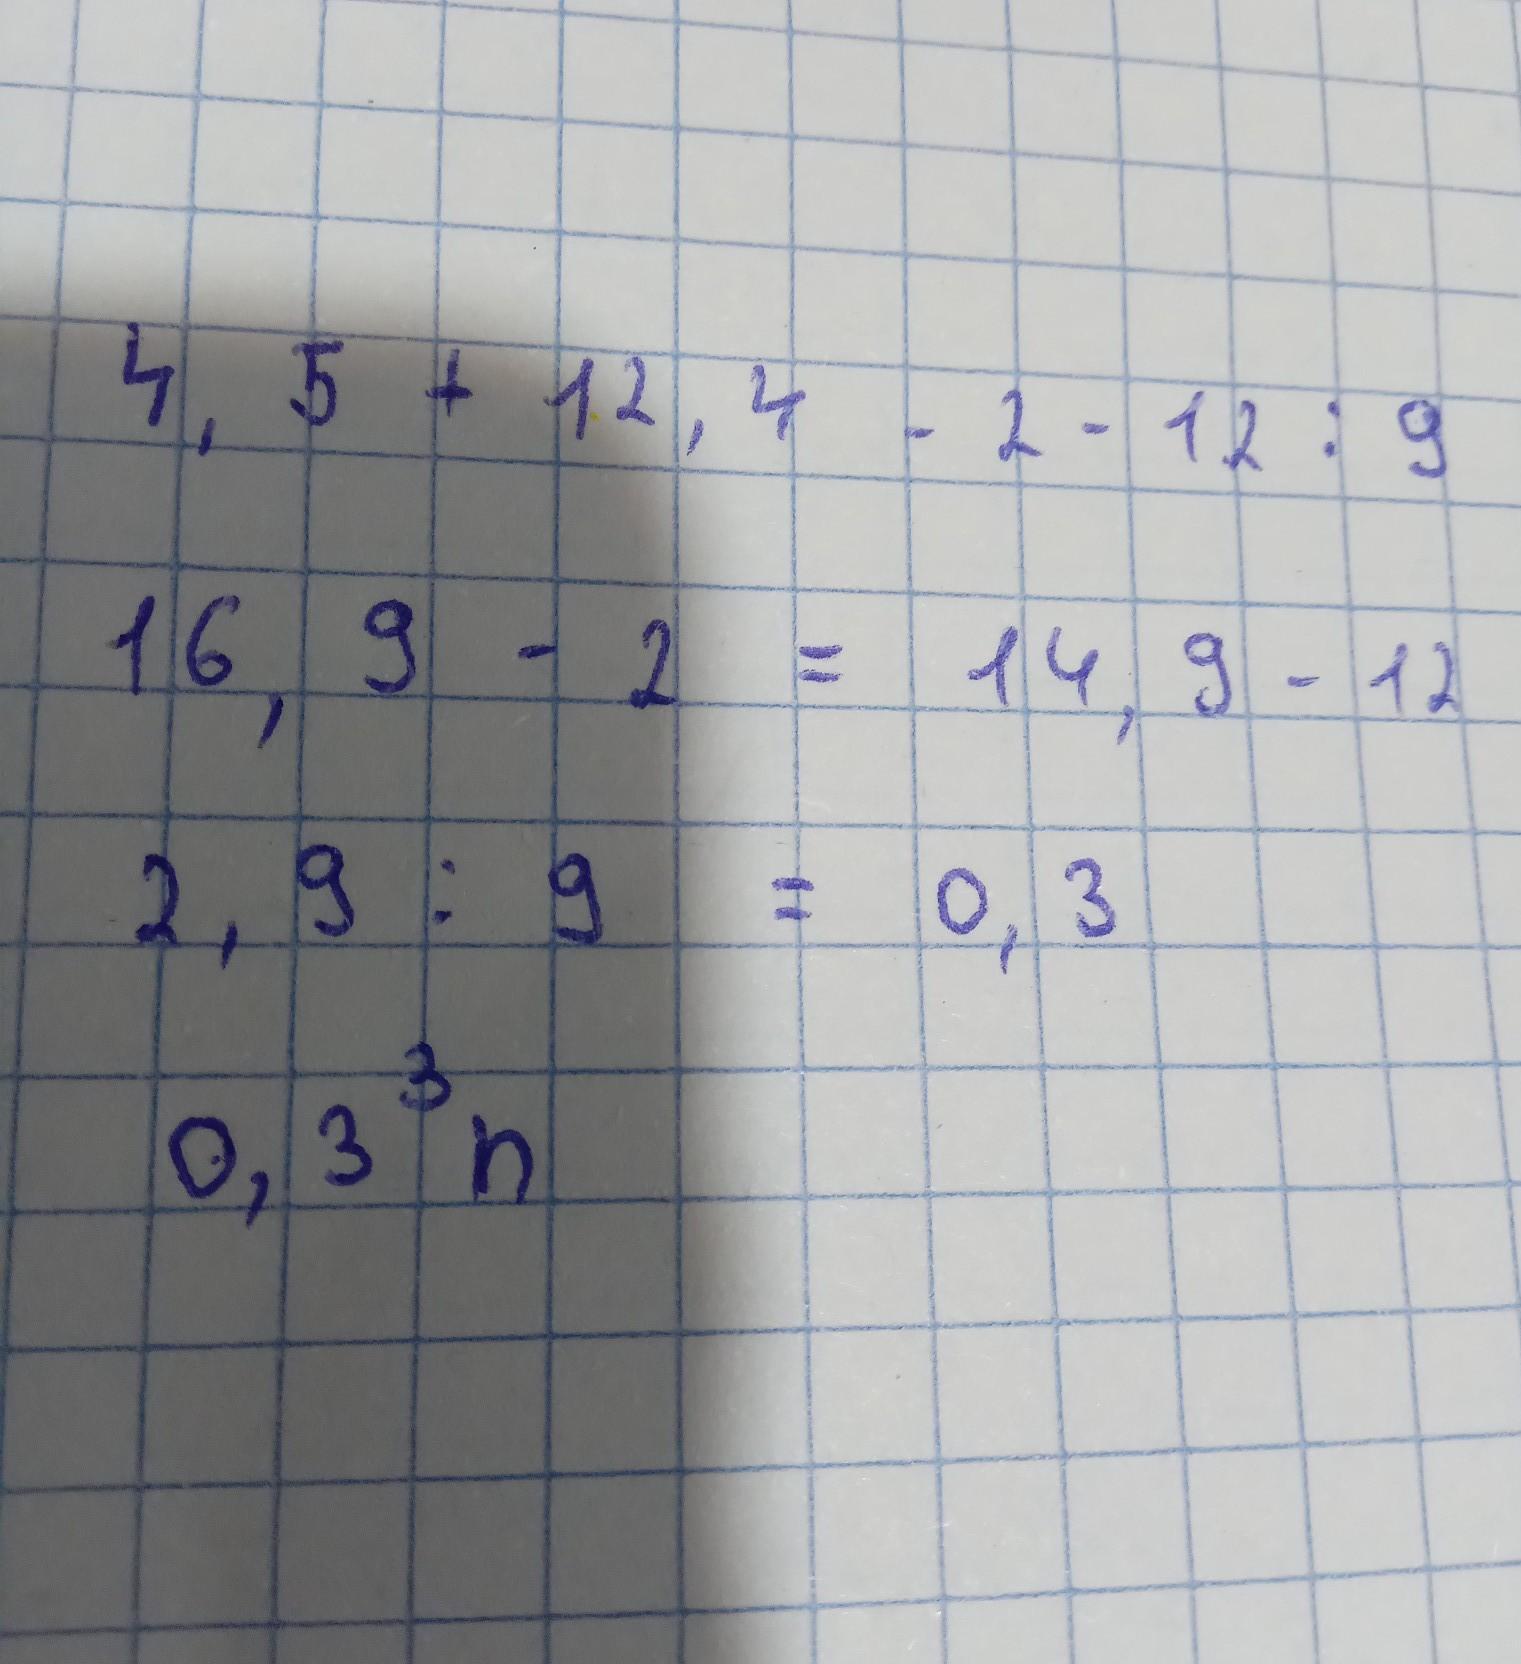 4,5 + 12,4 - 2 - 12 : 9
16,9 - 2 = 14,9 - 12
2,9 : 9 = 0,3
0,3³n